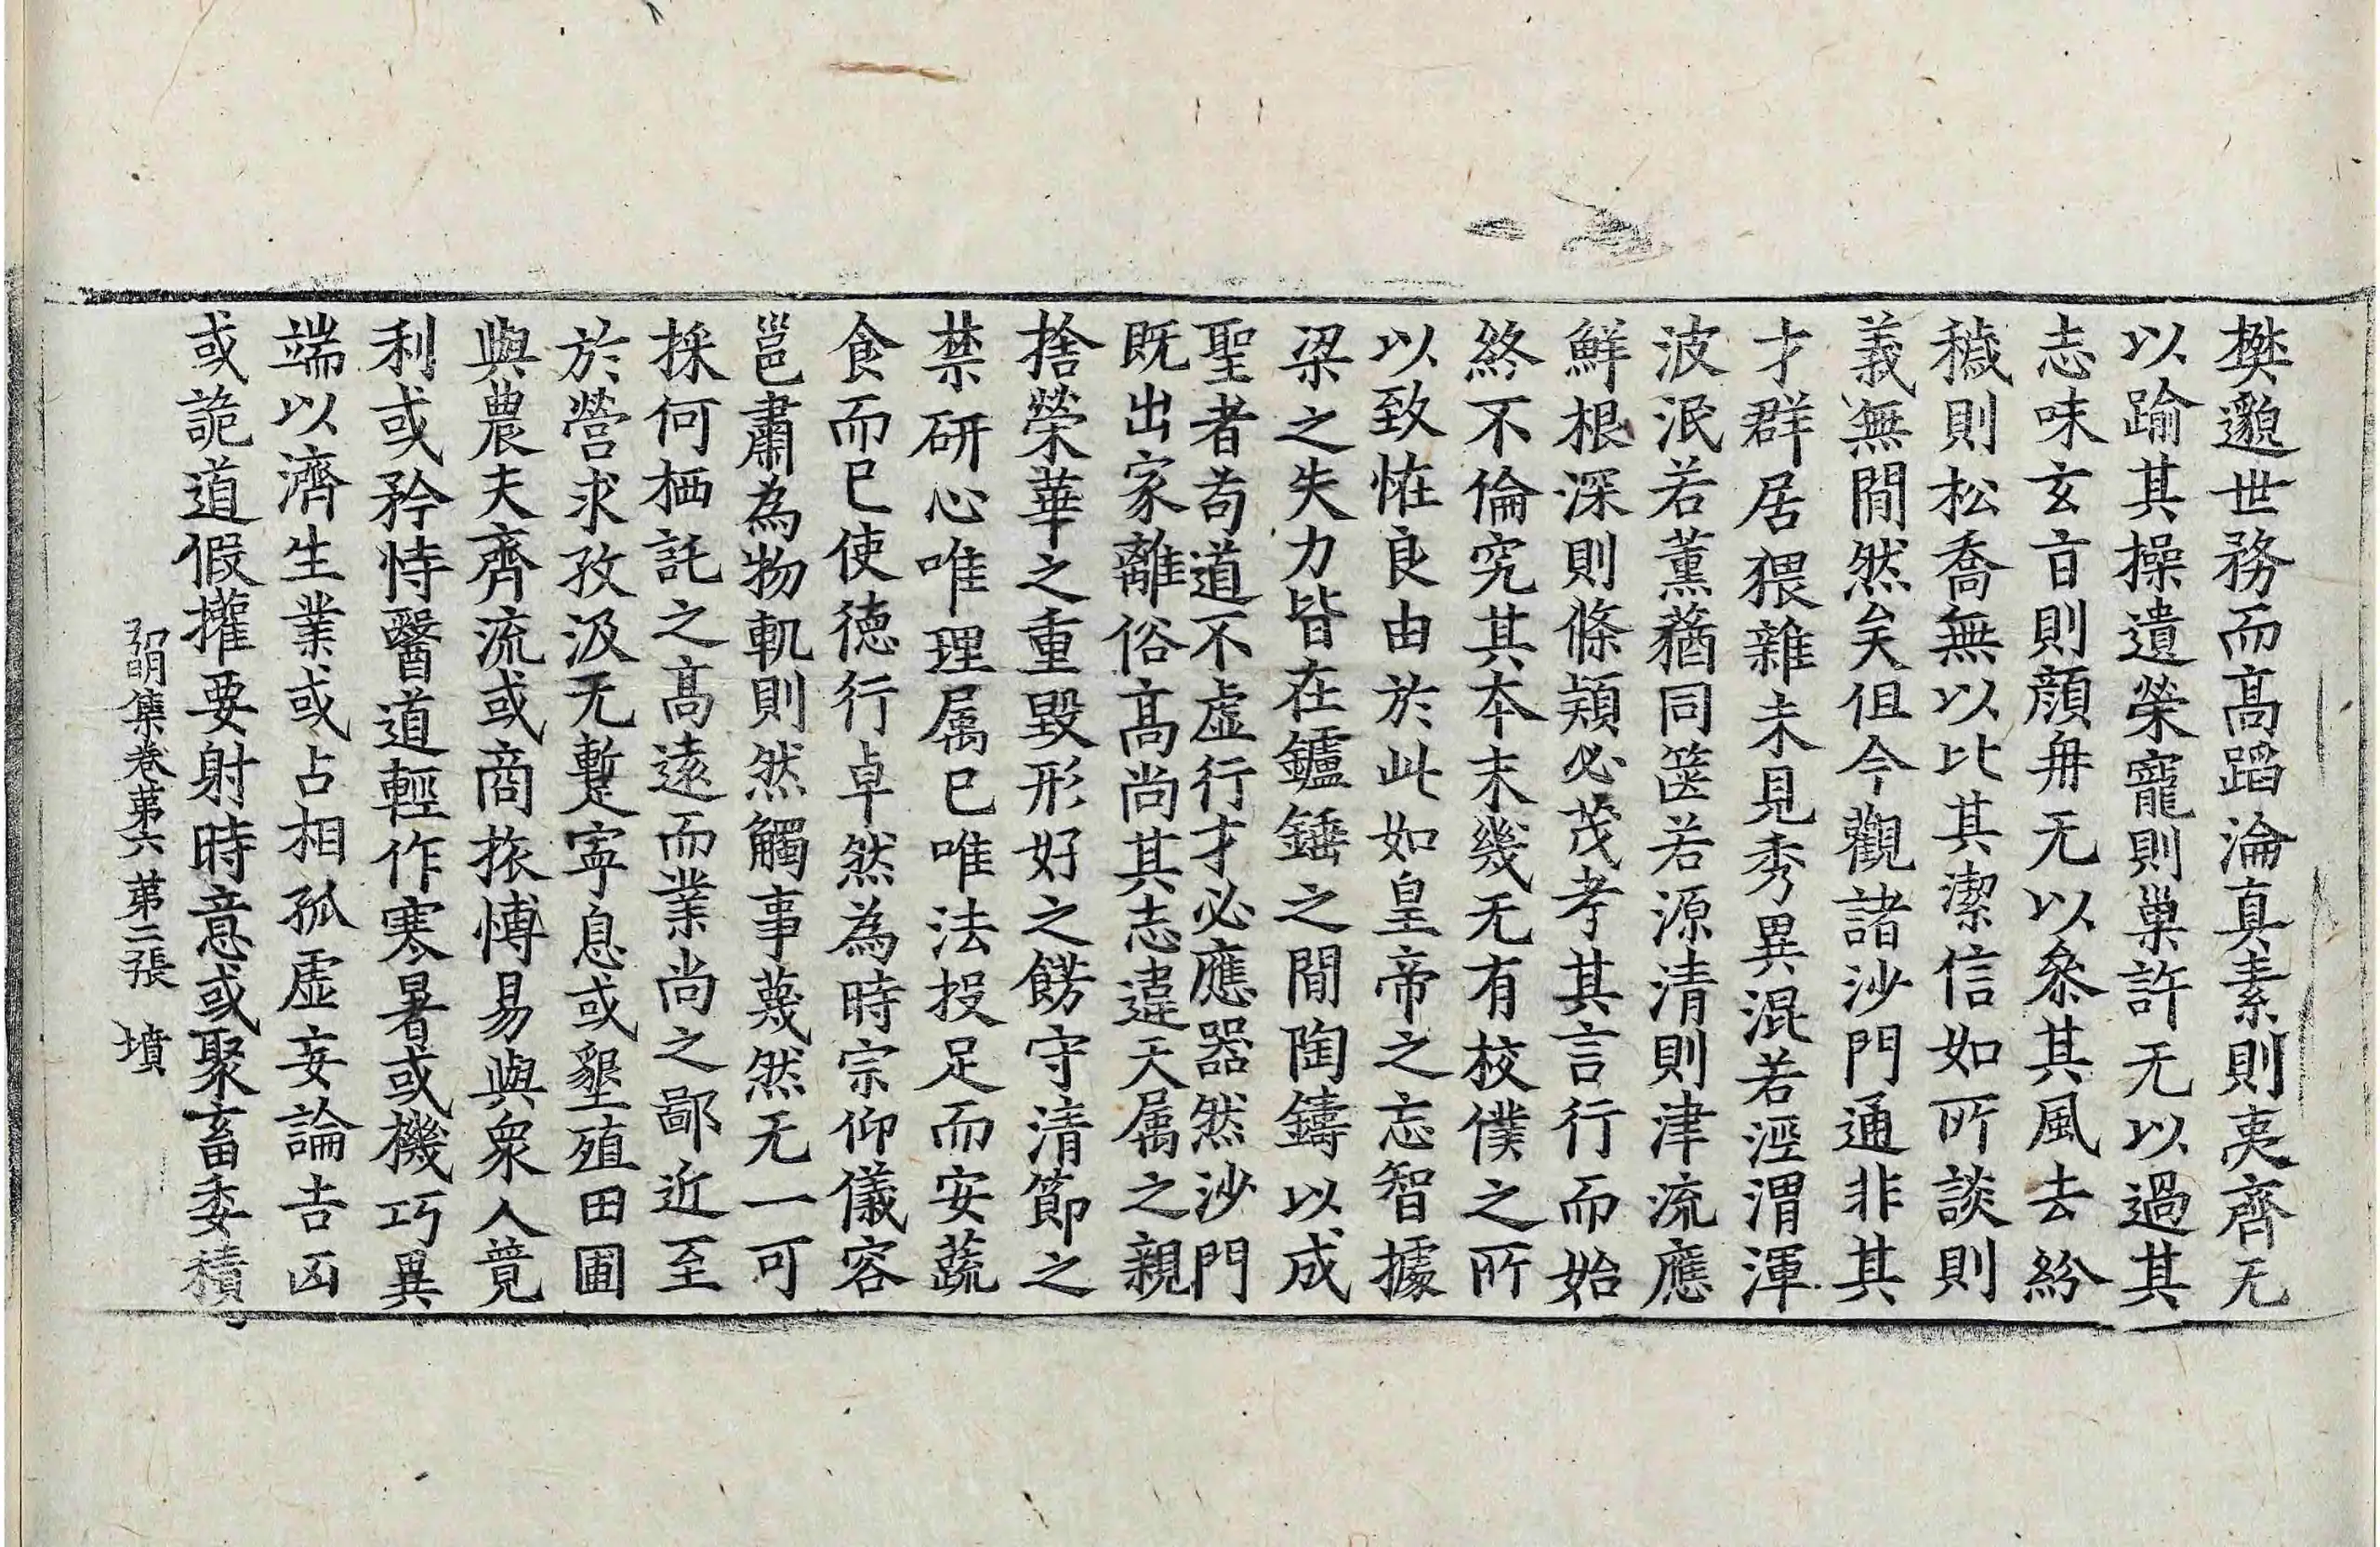 樊邈世務而髙蹈淪真素則夷齊无
以踰其操遺榮寵則巢許无以過其
志味玄旨則顔冉无以叅其風去紛
穢則松喬無以比其潔信如所談則
義無閒然矣但今觀諸沙門通非其
才群居猥雜未見秀異混若涇渭渾
波泯若薰蕕同篋若源清則津流應
鮮根深則條頴必茂考其言行而始
終不倫究其本末幾无有校僕之所
以致恠良由於此如皇帝之忘智據
梁之失力皆在鑪錘之閒陶鑄以成
聖者苟道不虛行才必應器然沙門
既出家離俗髙尚其志違天属之親
捨榮華之重毀形好之餝守清節之
禁研心唯理属已唯法投足而安蔬
食而已使徳行卓然為時宗仰儀容
邕肅為物軌則然觸事蔑然无一可
採何栖託之髙遠而業尚之鄙近至
於營求孜汲无蹔寧息或墾殖田圃
與農夫齊流或商旅愽易與衆人競
利或矜恃醫道輕作寒暑或機巧異
端以濟生業或占相孤虛妄論吉凶
或詭道假權要射時意或聚畜委積
弘明集卷第六　第二張　墳